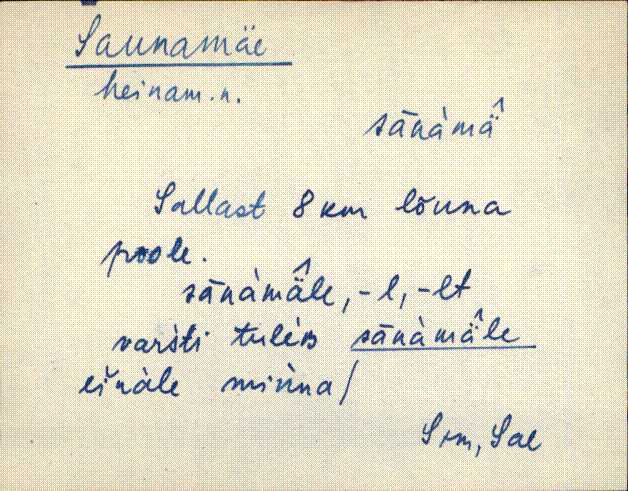 Saunamäe
heinam. n.
sānàmä̂
Sallast 8 km lõuna
poole.
sānàmä̂le, -l, -lt
varśti tulèB sānàmä̂le
eǐnàle miǹna/
Srm, Sal